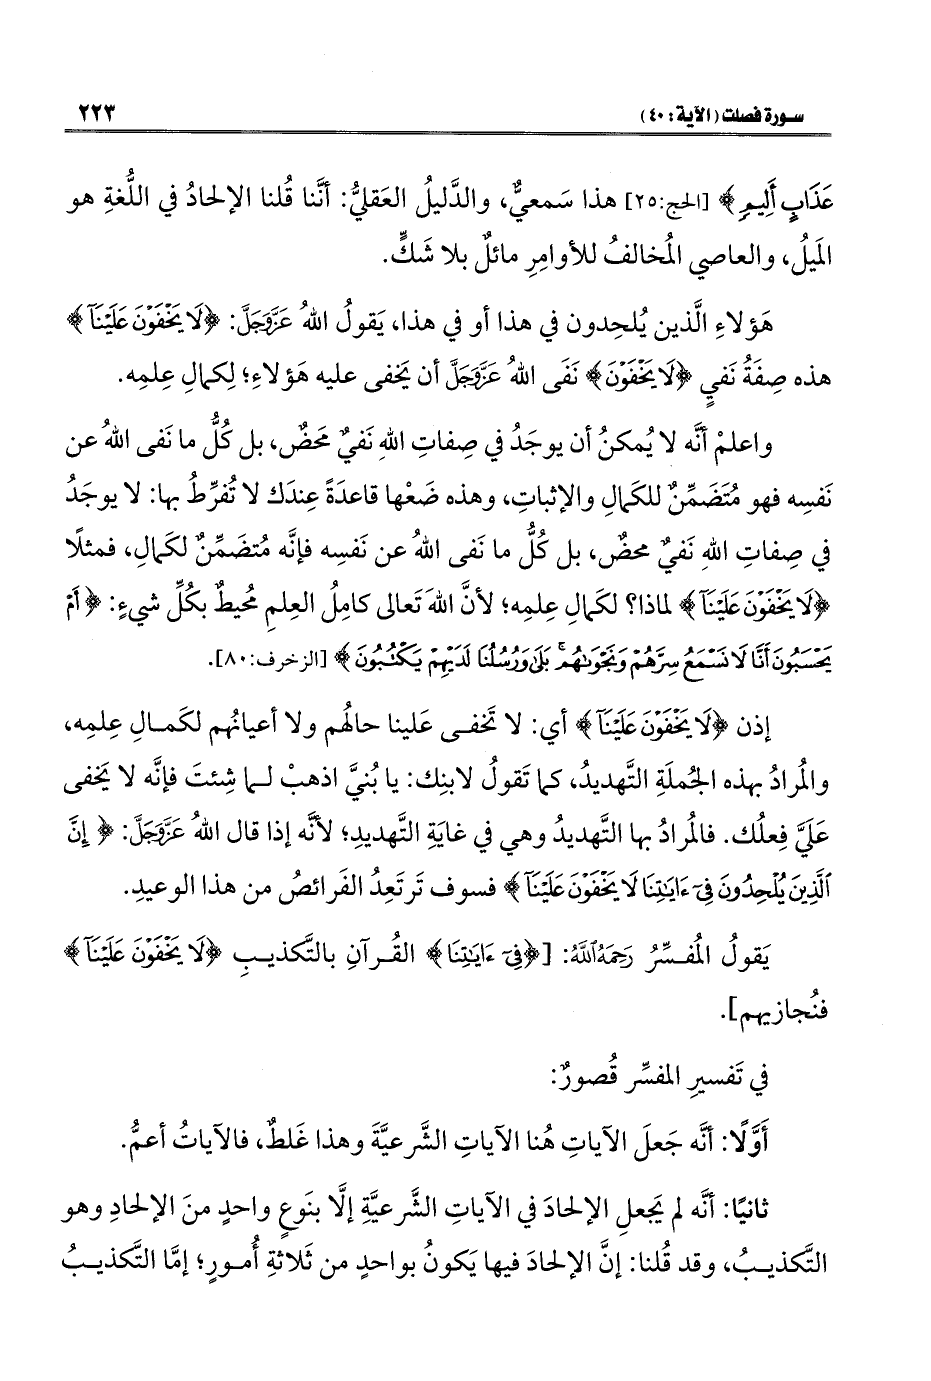 سورة فصلت (الآية: ٤٠) ٢٢٣
عَذَابٍ أَلِيمٍ﴾ [الحج:٢٥] هذا سَمعيٌّ، والدَّليلُ العَقليُّ: أنَّنا قُلنا الإلحادُ في اللُّغةِ هو
المَيلُ، والعاصي المُخالفُ للأوامِرِ مائلٌ بلا شَكٍّ.
هَؤلاءِ الَّذين يُلحِدون في هذا أو في هذا، يَقولُ اللهُ عَزَّوَجَلَّ: ﴿لَا يَخْفَوْنَ عَلَيْنَآ﴾
هذه صِفَةُ نَفيٍ ﴿لَا يَخْفَوْنَ﴾ نَفَى اللهُ عَزَّوَجَلَّ أن يَخفى عليه هَؤلاءِ؛ لِكمالِ عِلمِه.
واعلمْ أنَّه لا يُمكنُ أن يوجَدُ في صِفاتِ اللهِ نَفيٌ مَحضٌ، بل كُلُّ ما نَفى اللهُ عن
نَفسِه فهو مُتَضَمِّنٌ للكمالِ والإثباتِ، وهذه ضَعْها قاعدَةً عِندَك لا تُفرِّطُ بها: لا يوجَدُ
في صِفاتِ اللهِ نَفيٌ محضٌ، بل كُلُّ ما نَفى اللهُ عن نَفسِه فإنَّه مُتضَمِّنٌ لكَمالٍ، فمثلًا
﴿لَا يَخْفَوْنَ عَلَيْنَآ﴾ لماذا؟ لكمالِ عِلمِه؛ لأنَّ اللهَ تَعالى كاملُ العِلمِ مُحيطٌ بكُلِّ شيءٍ: ﴿أَمْ
يَحْسَبُونَ أَنَّا لَا نَسْمَعُ سِرَّهُمْ وَنَجْوَىٰهُم ۚ بَلَىٰ وَرُسُلُنَا لَدَيْهِمْ يَكْتُبُونَ﴾ [الزخرف:٨٠].
إذن ﴿لَا يَخْفَوْنَ عَلَيْنَآ﴾ أي: لا تَخفـى عَلينا حالُهم ولا أعيانُهم لكَمـالِ عِلمِه،
والمُرادُ بهذه الجُملَةِ التَّهديدُ، كما تَقولُ لابنِك: يا بُنيَّ اذهبْ لـما شِئتَ فإنَّه لا يَخفى
عَلَيَّ فِعلُك. فالمُرادُ بها التَّهديدُ وهي في غايَةِ التَّهديدِ؛ لأنَّه إذا قال اللهُ عَزَّوَجَلَّ: ﴿إِنَّ
ٱلَّذِينَ يُلْحِدُونَ فِىٓ ءَايَٰتِنَا لَا يَخْفَوْنَ عَلَيْنَآ﴾ فسوف تَرتَعِدُ الفَرائصُ من هذا الوعيدِ.
يَقولُ المُفـسِّرُ رَحِمَهُ ٱللَّهُ: [﴿فِىٓ ءَايَٰتِنَا﴾ القُـرآنِ بالتَّكذيـبِ ﴿لَا يَخْفَوْنَ عَلَيْنَآ﴾
فنُجازيهم].
في تَفسيرِ المفسِّر قُصورٌ:
أَوَّلًا: أنَّه جَعلَ الآياتِ هُنا الآياتِ الشَّرعيَّةَ وهذا غَلطٌ، فالآياتُ أعمُّ.
ثانيًا: أنَّه لم يَجعلِ الإلحادَ في الآياتِ الشَّرعيَّةِ إلَّا بنَوعٍ واحدٍ منَ الإلحادِ وهو
التَّكذيـبُ، وقد قُلنا: إنَّ الإلحادَ فيها يَكونُ بواحدٍ من ثَلاثةِ أُمـورٍ؛ إمَّا التَّكذيـبُ